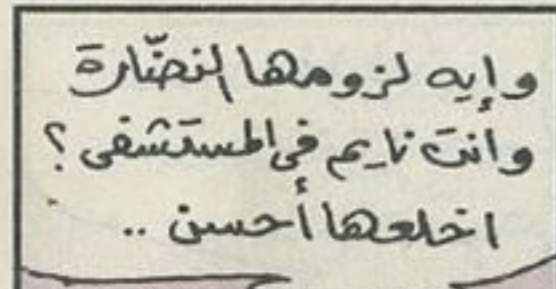 وإيه لزومها النضّارة
وأنت نايم في المستشفى ؟
اخلعها أحسن ..